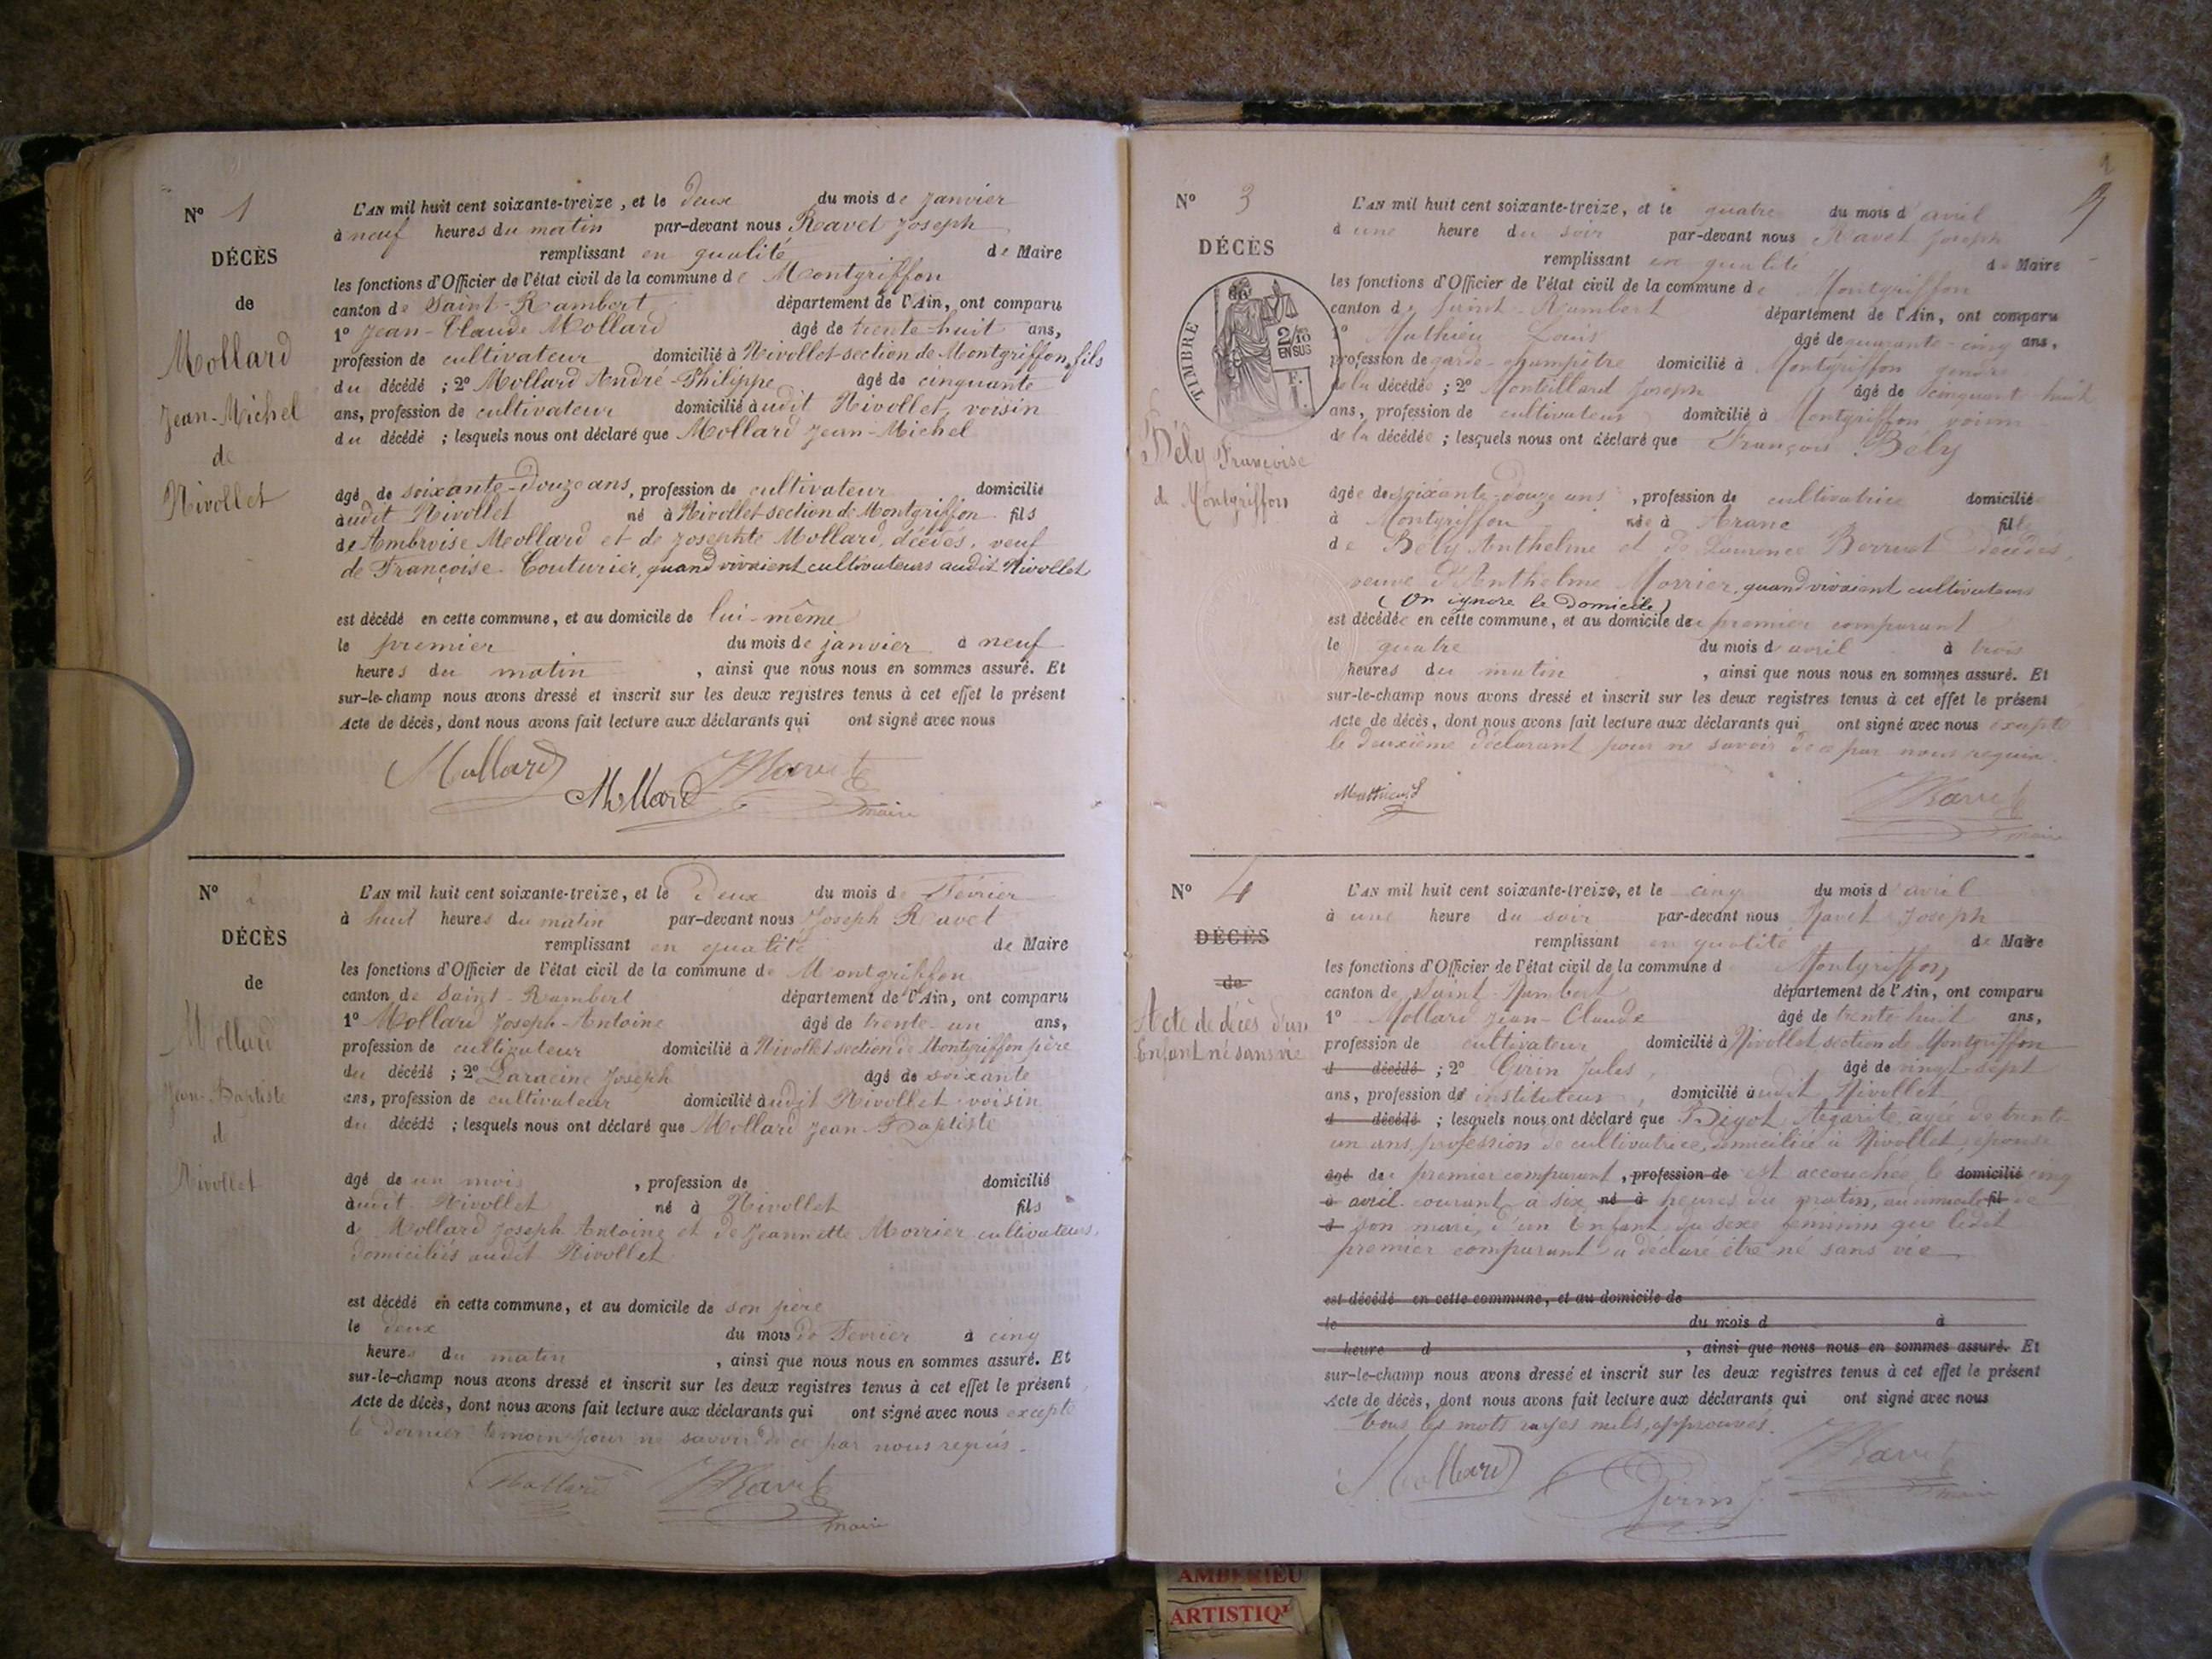 N° 1
DÉCÈS
de
Mollard
Jean-Michel
de
Nivollet
L'AN mil huit cent soixante-treize, et le deux du mois de janvier
à neuf heures du matin par-devant nous Ravet Joseph
remplissant en qualité de Maire
les fonctions d'Officier de l'état civil de la commune de Montgriffon
canton de Saint-Rambert département de l'Ain, ont comparu
1° Jean-Claude Mollard âgé de trente-huit ans,
profession de cultivateur domicilié à Nivollet section de Montgriffon, fils
du décédé ; 2° Mollard André-Philippe âgé de cinquante
ans, profession de cultivateur domicilié audit Nivollet, voisin
du décédé ; lesquels nous ont déclaré que Mollard Jean-Michel
âgé de soixante-douze ans, profession de cultivateur domicilié
audit Nivollet né à Nivollet section de Montgriffon fils
de Ambroise Mollard et de Josephte Mollard, décédés, veuf
de Françoise Couturier, quand vivaient cultivateurs audit Nivollet
est décédé en cette commune, et au domicile de lui-même
le premier du mois de janvier à neuf
heures du matin, ainsi que nous nous en sommes assuré. Et
sur-le-champ nous avons dressé et inscrit sur les deux registres tenus à cet effet le présent
Acte de décès, dont nous avons fait lecture aux déclarants qui ont signé avec nous
Mollard Mollard Ravet
maire
N° 2
DÉCÈS
de
Mollard
Jean-Baptiste
de
Nivollet
L'AN mil huit cent soixante-treize, et le deux du mois de Février
à huit heures du matin par-devant nous Joseph Ravet
remplissant en qualité de Maire
les fonctions d'Officier de l'état civil de la commune de Montgriffon
canton de Saint-Rambert département de l'Ain, ont comparu
1° Mollard Joseph-Antoine âgé de trente-un ans,
profession de cultivateur domicilié à Nivollet section de Montgriffon père
du décédé ; 2° Laracine Joseph âgé de soixante
ans, profession de cultivateur domicilié audit Nivollet voisin
du décédé ; lesquels nous ont déclaré que Mollard Jean-Baptiste
âgé de un mois, profession de domicilié
audit Nivollet né à Nivollet fils
de Mollard Joseph Antoine et de Jeannette Morrier cultivateurs,
domiciliés audit Nivollet
est décédé en cette commune, et au domicile de son père
le deux du mois de Février à cinq
heures du matin, ainsi que nous nous en sommes assuré. Et
sur-le-champ nous avons dressé et inscrit sur les deux registres tenus à cet effet le présent
Acte de décès, dont nous avons fait lecture aux déclarants qui ont signé avec nous excepté
le dernier témoin pour ne savoir de ce par nous requis.
Mollard Ravet
maire
2
N° 3
DÉCÈS
TIMBRE
2/10
EN SUS
Bély Françoise
de Montgriffon
L'AN mil huit cent soixante-treize, et le quatre du mois d'avril
à une heure du soir par-devant nous Ravet Joseph
remplissant en qualité de Maire
les fonctions d'Officier de l'état civil de la commune de Montgriffon
canton de Saint-Rambert département de l'Ain, ont comparu
1° Mathieu Louis âgé de quarante-cinq ans,
profession de garde-champêtre domicilié à Montgriffon gendre
de la décédée ; 2° Montillard Joseph âgé de cinquante huit
ans, profession de cultivateur domicilié à Montgriffon voisin
de la décédée ; lesquels nous ont déclaré que Françoise Bély
âgée de soixante-douze ans, profession de cultivatrice domiciliée
à Montgriffon née à Aranc fille
de Bély Anthelme et de Laurence Berruet décédés,
veuve d'Anthelme Morrier, quand vivaient cultivateurs
(on ignore le domicile)
est décédée en cette commune, et au domicile du premier comparant
le quatre du mois d'avril à trois
heures du matin, ainsi que nous nous en sommes assuré. Et
sur-le-champ nous avons dressé et inscrit sur les deux registres tenus à cet effet le présent
Acte de décès, dont nous avons fait lecture aux déclarants qui ont signé avec nous excepté
le deuxième déclarant pour ne savoir de ce par nous requis.
Mathieu L Ravet
maire
N° 4
DÉCÈS
de
Acte de décès d'un
Enfant né sans vie
L'AN mil huit cent soixante-treize, et le cinq du mois d'avril
à une heure du soir par-devant nous Ravet Joseph
remplissant en qualité de Maire
les fonctions d'Officier de l'état civil de la commune d Montgriffon
canton de Saint-Rambert département de l'Ain, ont comparu
1° Mollard Jean-Claude âgé de trente-huit ans,
profession de cultivateur domicilié à Nivollet section de Montgriffon
d décédé ; 2° Girin Jules, âgé de vingt-sept
ans, profession de instituteur, domicilié audit Nivollet
d décédé ; lesquels nous ont déclaré que Bigot Agarite âgée de trente-
un ans, profession de cultivatrice, domiciliée à Nivollet, épouse
âgé du premier comparant, profession de est accouchée le domicilié cinq
à avril courant à six né à heures du matin, au domicile fil de
d son mari, d'un Enfant du sexe féminin que ledit
premier comparant a déclaré être né sans vie
est décédé en cette commune, et au domicile de
le du mois d à
heure d, ainsi que nous nous en sommes assuré. Et
sur-le-champ nous avons dressé et inscrit sur les deux registres tenus à cet effet le présent
Acte de décès, dont nous avons fait lecture aux déclarants qui ont signé avec nous
Tous les mots rayés nuls, approuvés.
Mollard Girin J. Ravet
maire
AMBERIEU
ARTISTIQ